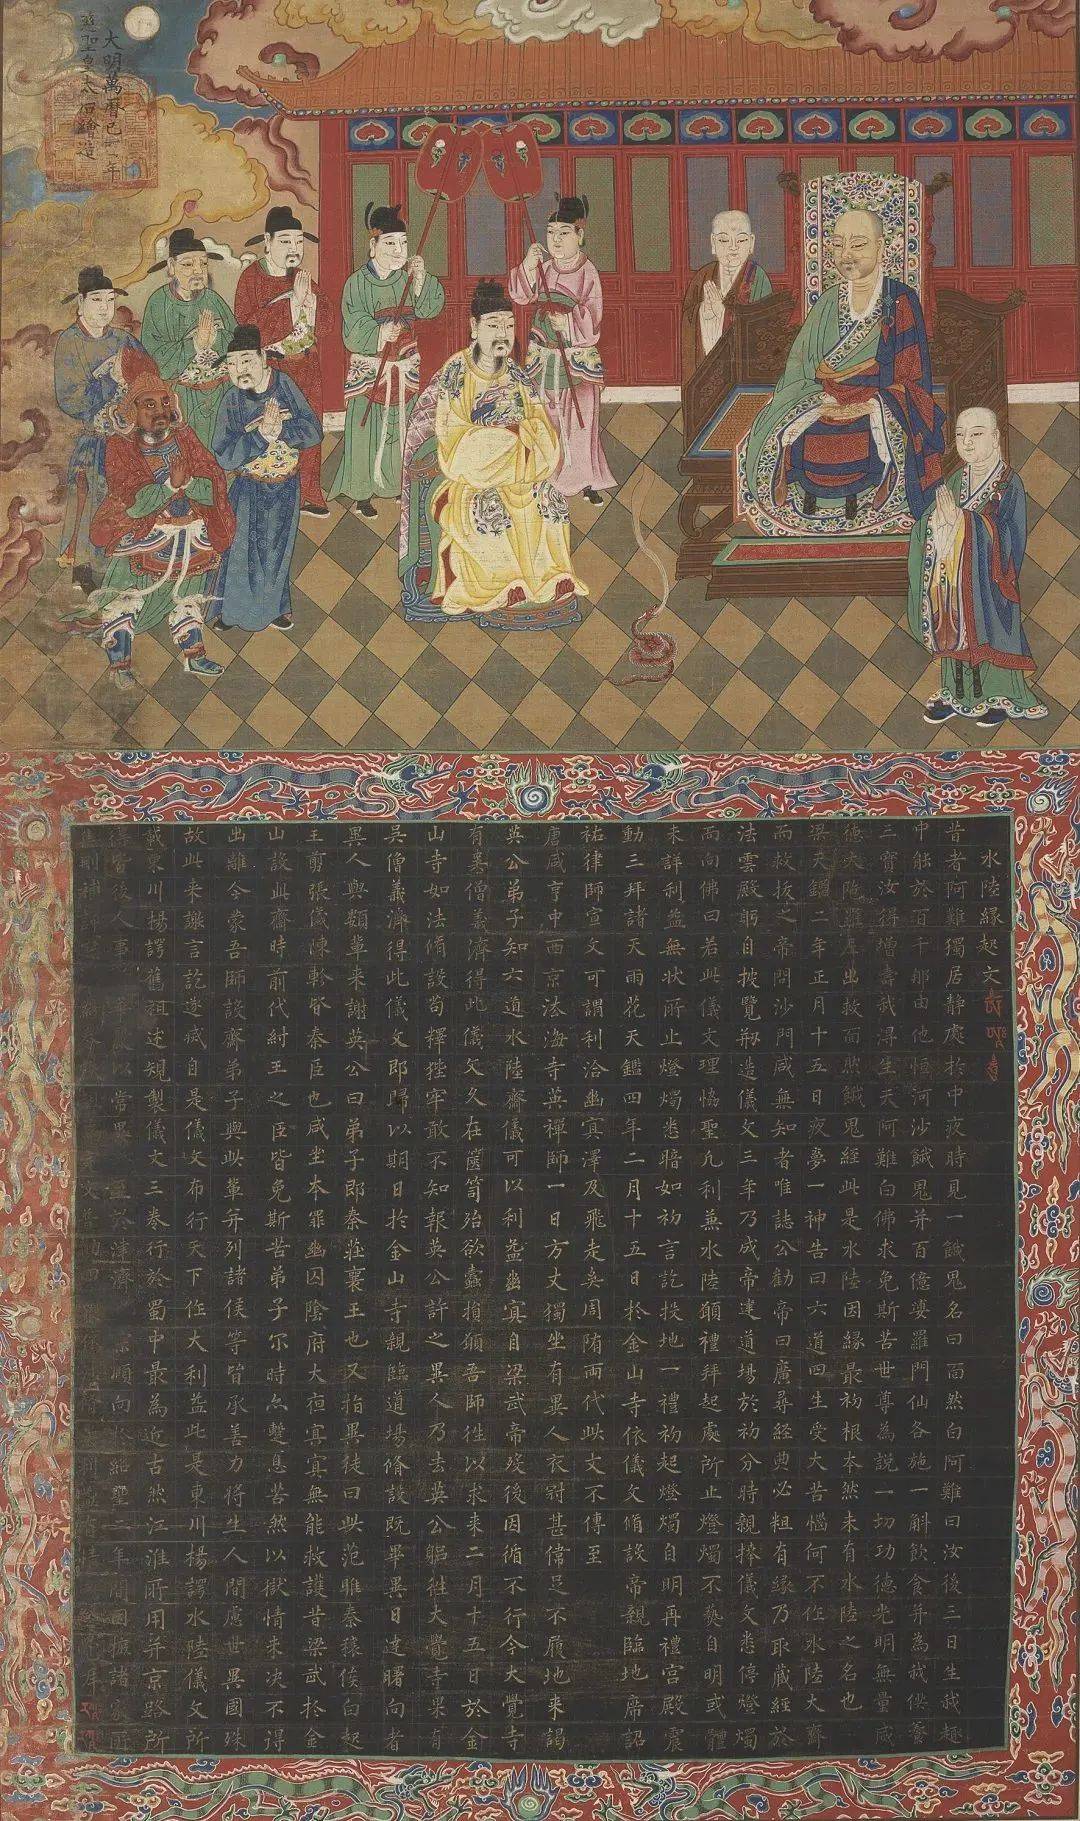 大明萬曆己酉年
慈聖皇太后繪造
水陸緣起文
昔者阿難獨居靜處於中夜時見一餓鬼名曰面然白阿難曰汝後三日生我趣
中能於百千那由他恒河沙餓鬼并百億婆羅門仙各施一斛飲食并為我供養
三寶汝得增壽我得生天阿難白佛求免斯苦世尊為說一切功德光明無量威
德大陁羅尼出救面然餓鬼經此是水陸因緣最初根本然未有水陸之名也
梁天鑑二年正月十五日夜夢一神告曰六道四生受大苦惱何不作水陸大齋
而救拔之帝問沙門咸無知者唯誌公勸帝曰廣尋經典必粗有緣乃取藏經於
法雲殿躬自披覽刱造儀文三年乃成帝建道場於初分時親捧儀文悉停燈燭
而向佛曰若此儀文理恊聖凡利兼水陸願禮拜起處所止燈燭不爇自明或體
未詳利益無狀所止燈燭悉暗如初言訖投地一禮初起燈燭自明再禮宮殿震
動三拜諸天雨花天鑑四年二月十五日於金山寺依儀文脩設帝親臨地席詔
祐律師宣文可謂利洽幽冥澤及飛走矣周隋兩代此文不傳至
唐咸亨中西京法海寺英禪師一日方丈獨坐有異人衣冠甚偉足不履地來謁
英公弟子知六道水陸齋儀可以利益幽冥自梁武帝歿後因循不行今大覺寺
有吳僧義濟得此儀文久在篋笥殆欲蠹損願吾師往以求來二月十五日於金
山寺如法脩設苟釋狴牢敢不知報英公許之異人乃去英公躬往大覺寺果有
吳僧義濟得此儀文即歸以期日於金山寺親臨道場脩設既畢異日達曙向者
異人與類輩來謝英公曰弟子即秦莊襄王也又指異徒曰此范雎秦穰侯白起
王剪張儀陳軫皆秦臣也咸坐本罪幽囚陰府大夜冥冥無能救護昔梁武於金
山設此齋時前代紂王之臣皆免斯苦弟子尔時亦蹔息苦然以獄情未決不得
出離今蒙吾師設齋弟子與此輩并列諸侯等皆承善力將生人間慮世異國殊
故此來謝言訖遂滅自是儀文布行天下作大利益此是東川楊諤水陸儀文所
載東川楊諤舊祖述規製儀文三卷行於蜀中最為近古然江淮所用并京路所
得皆後人事以常異至於津濟一宗願向紹聖二年間因摭諸家所